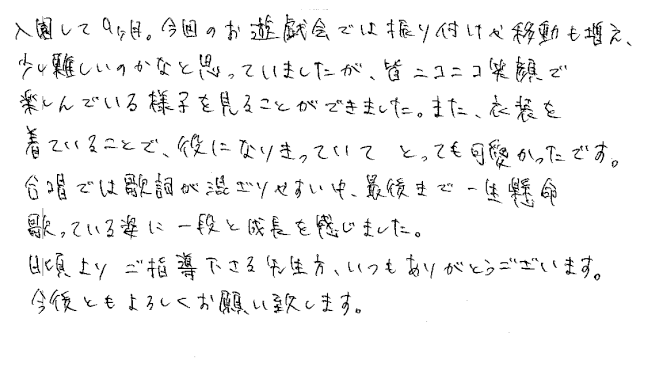 入園して9ヶ月。今回のお遊戯会では振り付けや移動も増え、
少し難しいのかなと思っていましたが、皆ニコニコ笑顔で
楽しんでいる様子を見ることができました。また、衣装を
着ていることで、役になりきっていて とっても可愛かったです。
合唱では歌詞が混ざりやすい中、最後まで一生懸命
歌っている姿に一段と成長を感じました。
日頃よりご指導下さる先生方、いつもありがとうございます。
今後ともよろしくお願い致します。